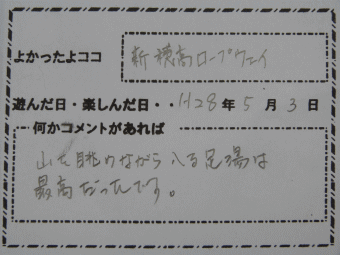 よかったよココ 新穂高ロープウェイ
遊んだ日・楽しんだ日・・H28年5月3日
何かコメントがあれば
山を眺めながら入る足湯は
最高だったです。